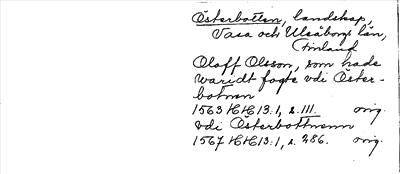 Österbotten, landskap,
Vasa och Uleåborgs län,
Finland
Oloff Olsson, som hade
waridt fogte vdi Öster-
botnen
1563 HH 13:1, s. III. orig.
vdi Österbottnenn
1567 HH 13:1, s. 286. orig.